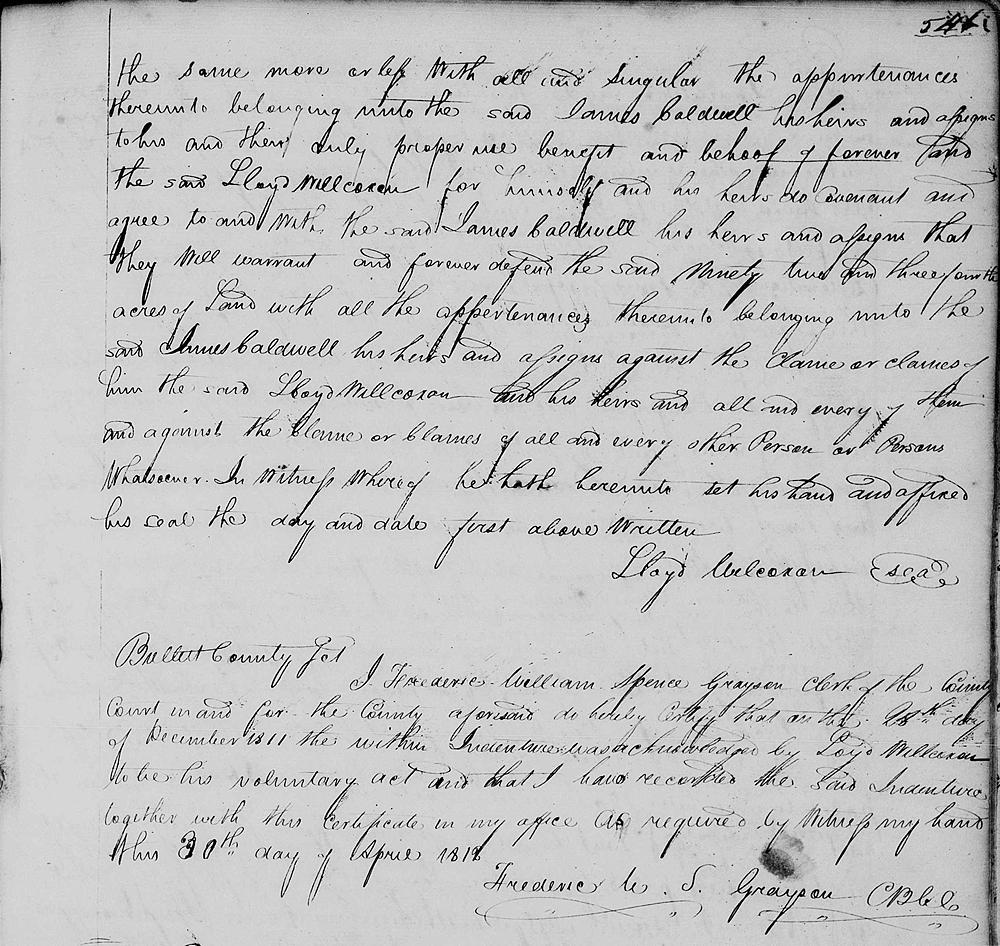 the same more or less With all and Singular the appurtenances
thereunto belonging unto the said James Caldwell his heirs and assigns
to his and their only proper use benefit and behoof of forever and
the said Lloyd Willcoxon for himself and his heirs do covenant and
agree to and With the said James Caldwell his heirs and assigns that
they Will warrant and forever defend the said Ninety two and three fourths
acres of Land with all the appertenances thereunto belonging unto the
said James Caldwell his heirs and assigns against the Clame or clames of
him the said Lloyd Willcoxon and his heirs and all and every of them
and against the Clame or Clames of all and every other Person or Persons
Whatsoever. In Witness Whereof he hath hereunto set his hand and affixed
his seal the day and date first above Written
Lloyd Wilcoxon seal
Bullitt County Sct
I Frederic William Spence Grayson Clerk of the County
Court in and for the County aforesaid do hereby Certify that on the day
of December 1811 the within Indenture was acknowledged by Loyd Willcoxon
to be his voluntary act and that I have recorded the said Indenture
together with this Certificate in my office as required by Witness my hand
this 30th day of April 1812
Frederic W. S. Grayson CBCC